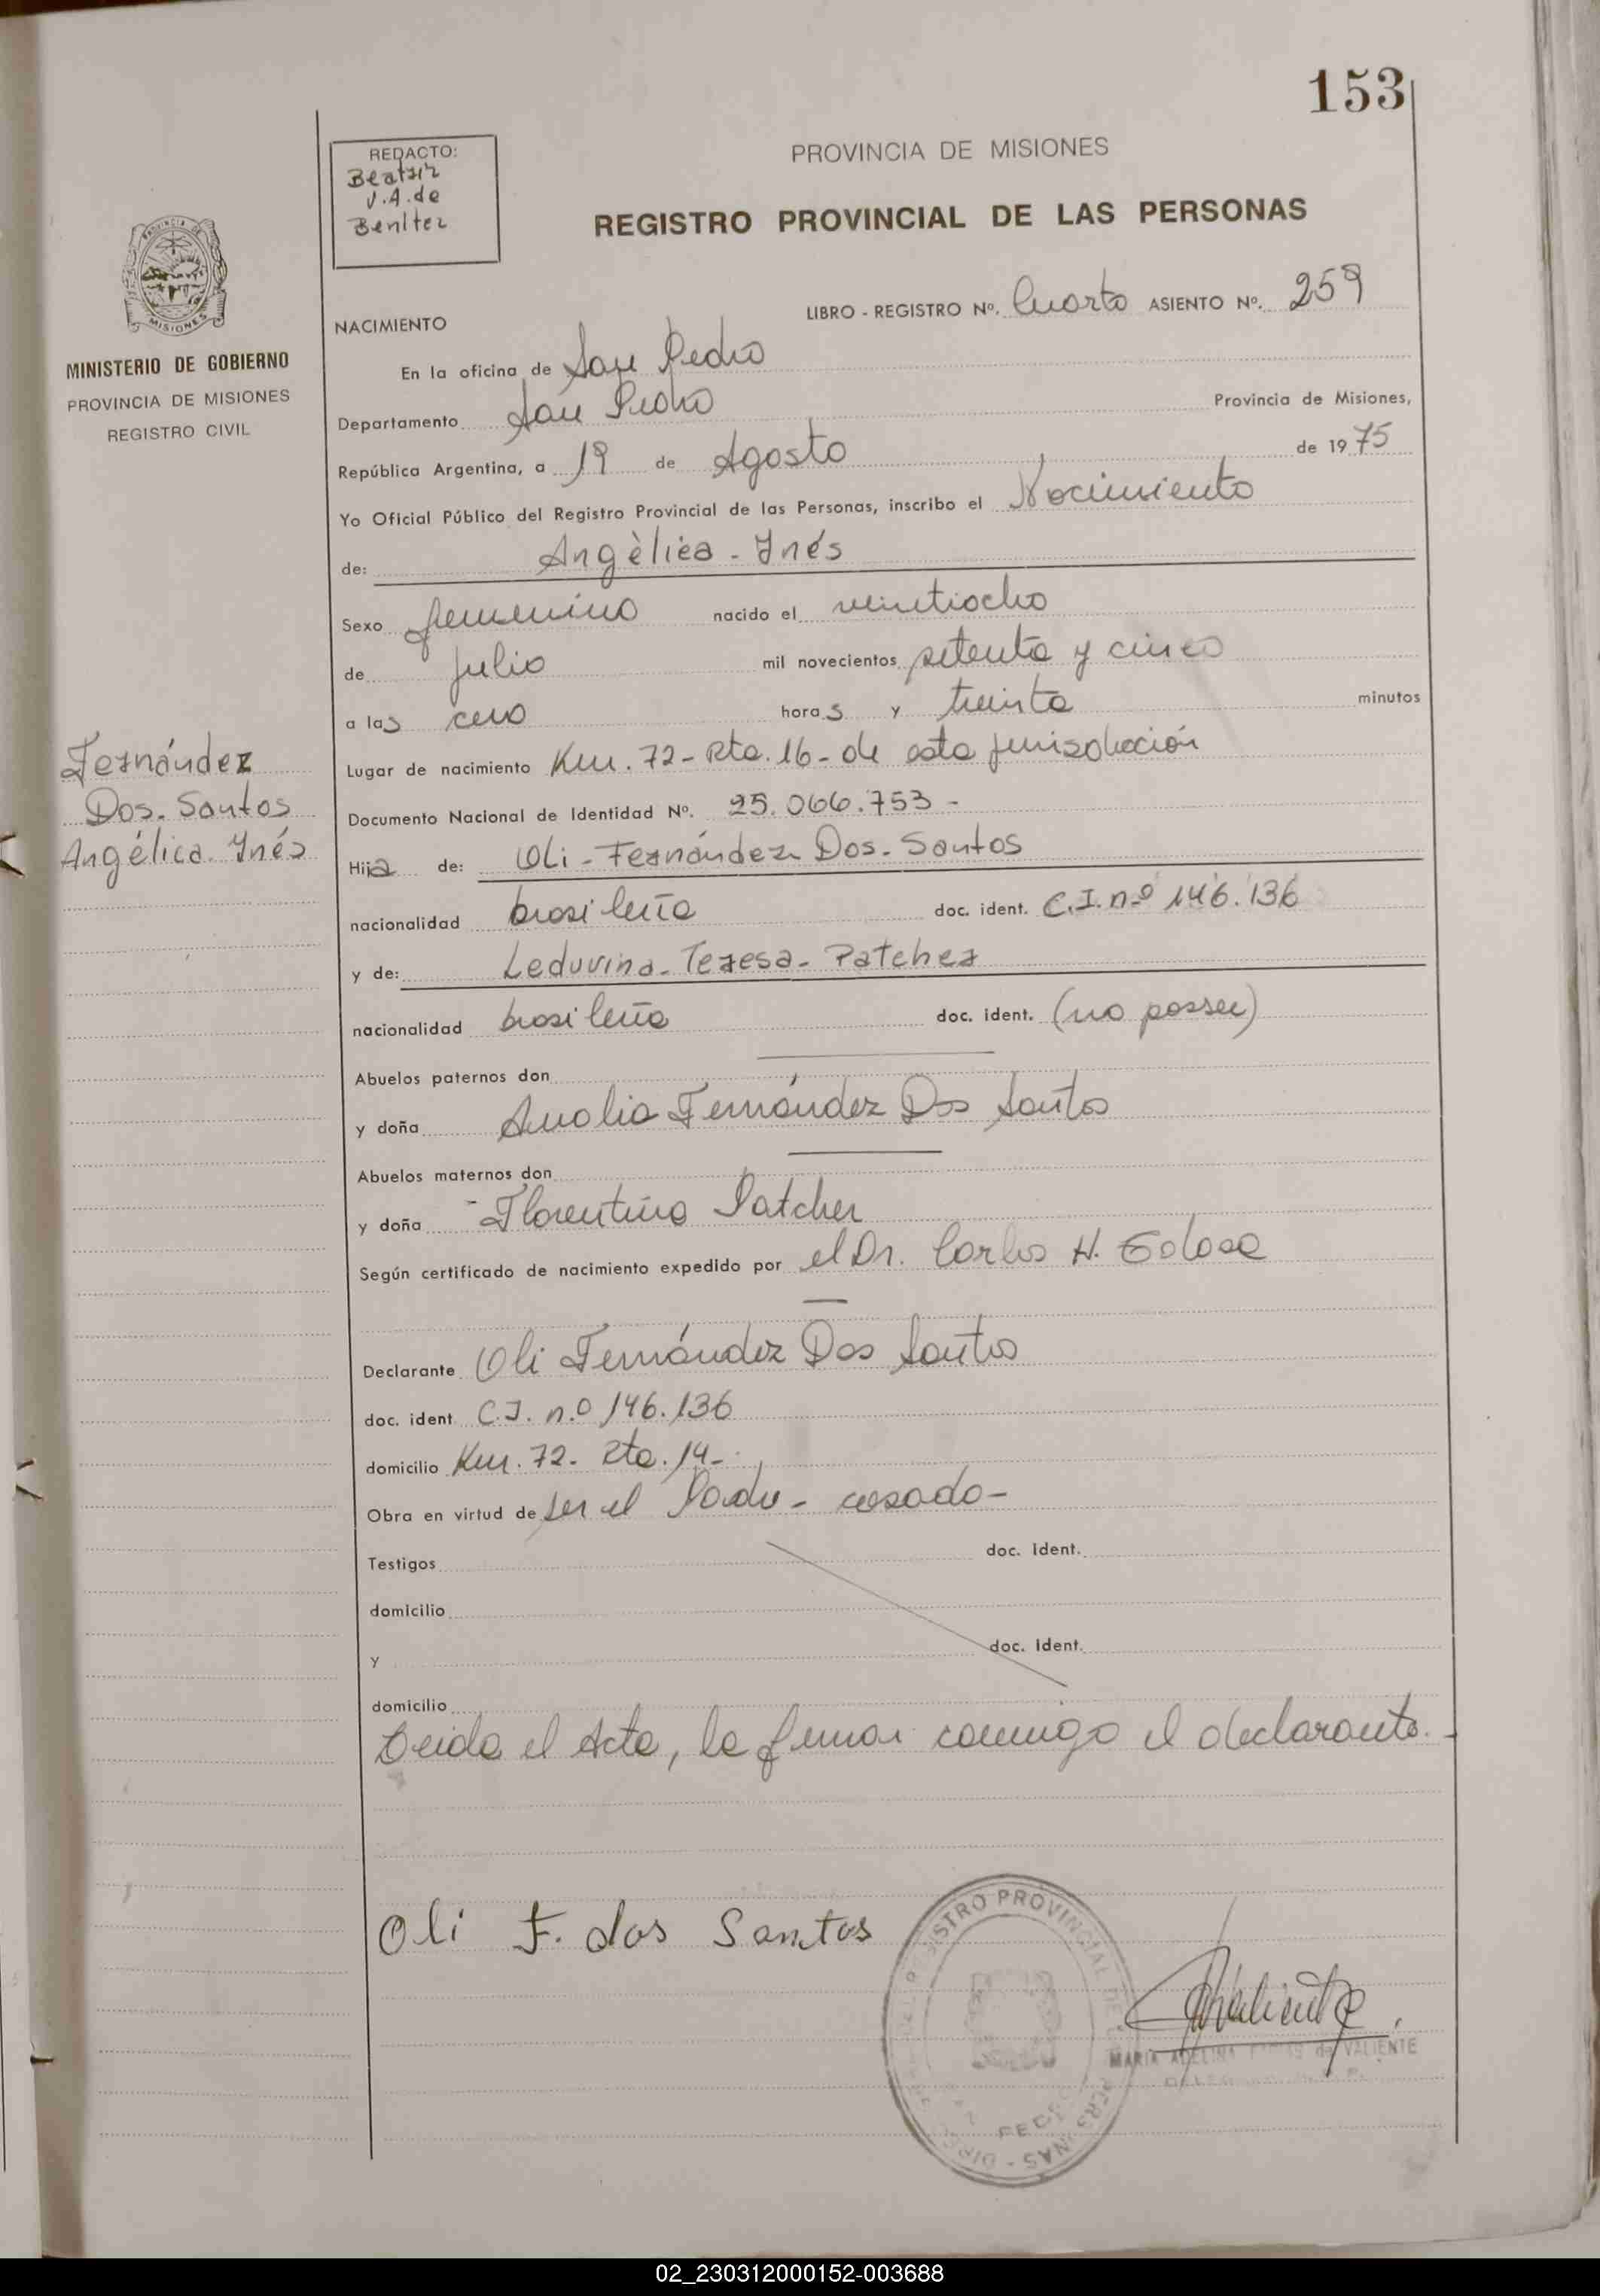 153
REDACTO:
Beatriz
V.A. de
Benítez
PROVINCIA DE MISIONES
REGISTRO PROVINCIAL DE LAS PERSONAS
PROVINCIA DE
MISIONES
MINISTERIO DE GOBIERNO
PROVINCIA DE MISIONES
REGISTRO CIVIL
LIBRO - REGISTRO Nº. Cuarto ASIENTO Nº. 259
NACIMIENTO
En la oficina de San Pedro
Departamento San Pedro Provincia de Misiones,
República Argentina, a 19 de Agosto de 1975
Yo Oficial Público del Registro Provincial de las Personas, inscribo el Nacimiento
de: Angèlica - Ynés
Sexo femenino nacido el veintiocho
de Julio mil novecientos setenta y cinco
a las cero horas y treinta minutos
Fernández
Dos. Santos
Angélica Ynés
Lugar de nacimiento Km. 72 - Rta. 16 - de esta jurisdicción
Documento Nacional de Identidad Nº. 25.066.753 -
Hija de: Oli - Fernández Dos. Santos
nacionalidad brasileña doc. ident. C.I. nº 146.136
y de: Leduvina - Teresa - Patcher
nacionalidad brasileña doc. ident. (no possee)
Abuelos paternos don
y doña Analia Fernández Dos Santos
Abuelos maternos don
y doña Florentina Patcher
Según certificado de nacimiento expedido por el Dr. Carlos H.
Declarante Oli Fernández Dos Santos
doc. ident C.I. n.º 146.136
domicilio Km. 72 - Rta. 14 -
Obra en virtud de ser el Padre - casado -
Testigos doc. ident.
domicilio
y doc. ident.
domicilio
Leida el Acta, la firman conmigo el declarante. -
Oli F. dos Santos
REGISTRO PROVINCIAL DE PERSONAS
MARIA ADELINA de VALIENTE
02_230312000152-003688